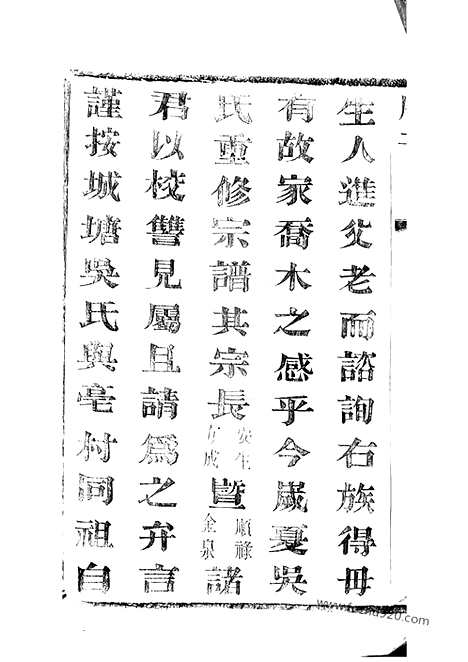 生人進父老而諮詢右族得毋
有故家喬木之感乎今歲夏吳
氏重修宗譜其宗長安生有成暨順祿金泉諸
君以校讐見屬且請爲之弁言
謹按城塘吳氏與亳村同祖自